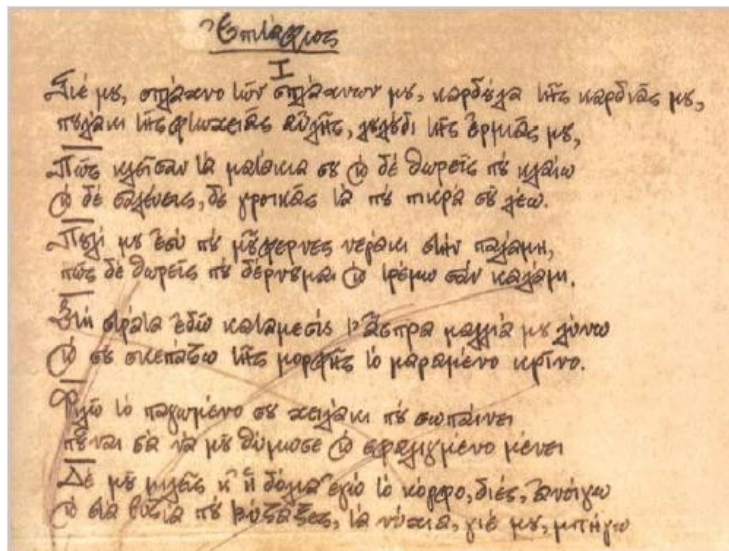 Ἐπιτάφιος
I
Γιέ μου, σπλάχνο τῶν σπλάχνων μου, καρδούλα τῆς καρδιᾶς μου,
πουλάκι τῆς φτωχειᾶς αὐλῆς, λουλούδι τῆς ἐρμιᾶς μου,
Πῶς κλεῖσαν τὰ ματάκια σου καὶ δὲ θωρεῖς ποὺ κλαίω
καὶ δὲ σαλεύεις, δὲ γροικᾶς τὰ ποὺ πικρὰ σοῦ λέω.
Πουλί μου ἐσὺ ποὺ μοῦφερνες νεράκι στὴν παλάμη,
πῶς δὲ θωρεῖς ποὺ δέρνουμαι καὶ τρέμω σὰν καλάμι.
Στὴ στράτα ἐδῶ καταμεσὶς τ' ἄσπρα μαλλιά μου λύνω
καὶ σου σκεπάζω τῆς μορφῆς τὸ μαραμένο κρίνο.
Φιλῶ τὸ παγωμένο σου χειλάκι ποὺ σωπαίνει
ποὖναι σὰ νὰ μοῦ θύμωσε καὶ σφαλιγμένο μένει
Δέ μοῦ μιλεῖς κ' ἡ δόλια ἐγὼ τὸ κόρφο, διές, ἀνοίγω
καὶ στὰ βυζιὰ ποὺ βύζαξες, τὰ νύχια, γιέ μου, μπήγω